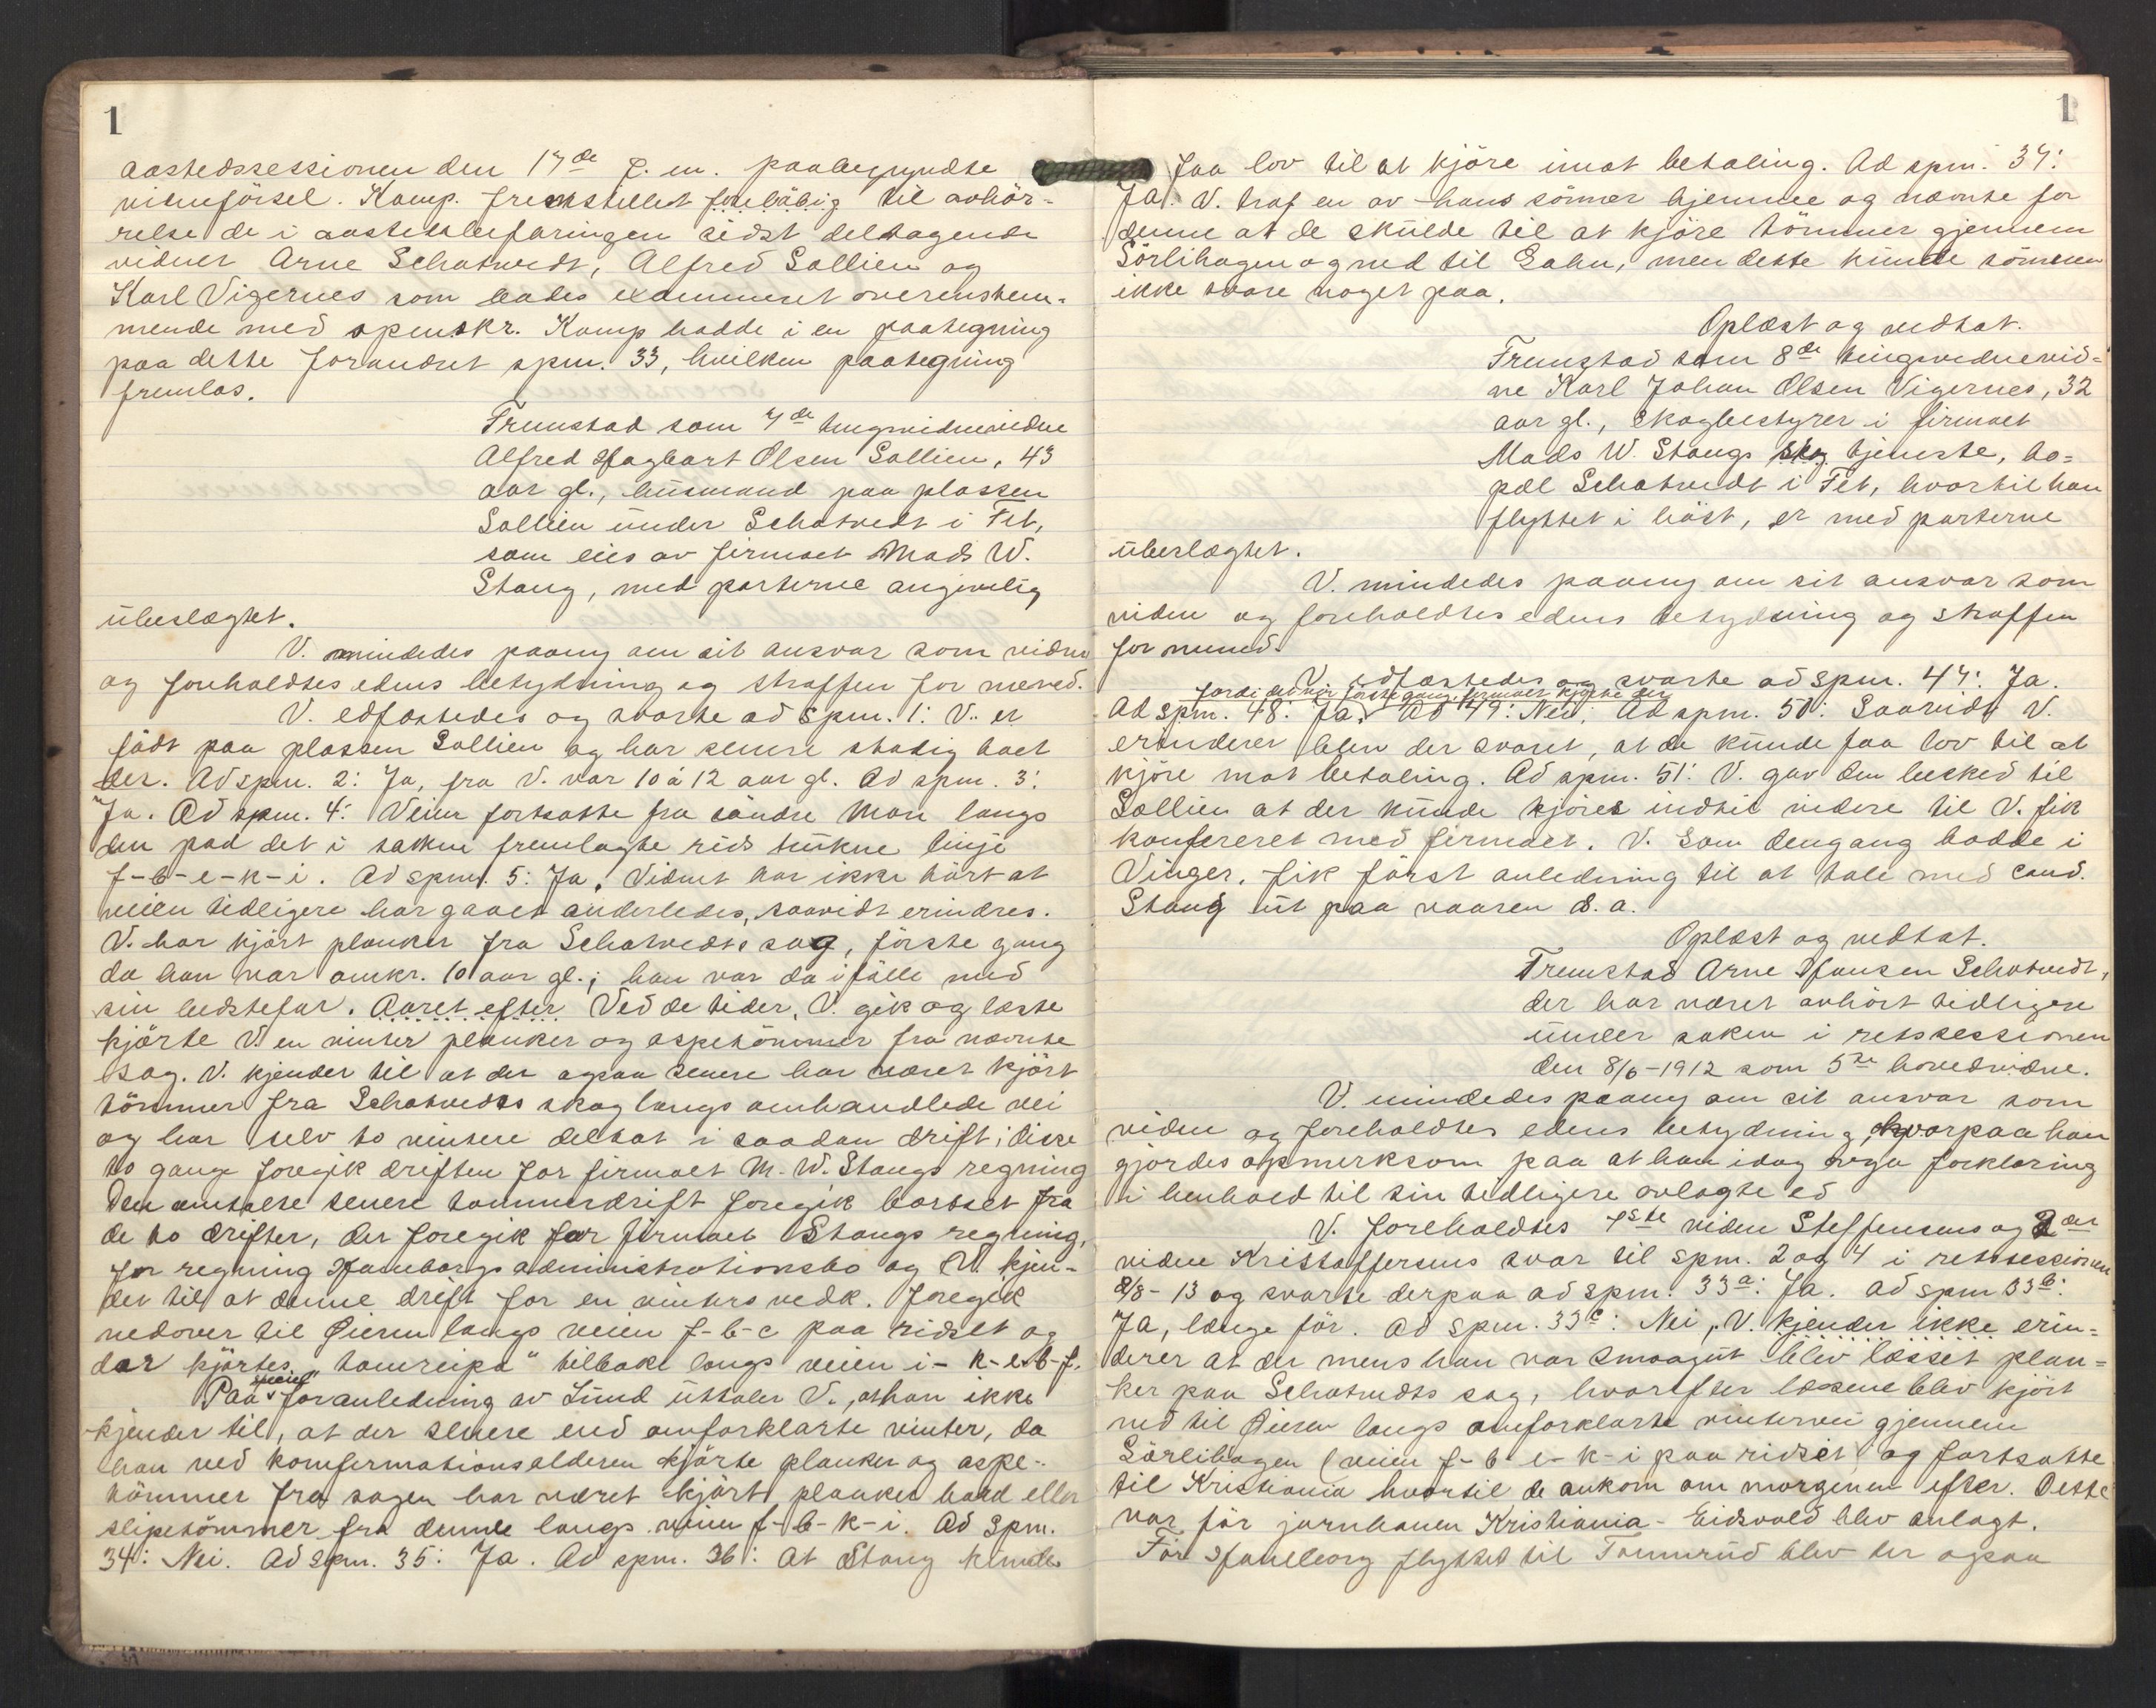 1
aastedssessionen den 17de f. m. paabegyndte
vidneförsel. Kamp. fremstillet foreläbig til avhör-
relse de i aastedsbefaringen sidst deltagende
vidner Arne Schatvedt, Alfred Sollien og
Karl Vigernes som bades examineret overenstem-
mende med spmskr. Kamp hadde i en paategning
paa dette forandret spm. 33, hvilken paategning
fremlas.
Fremstod som 7de tingsvidnevidne
Alfred Hagbart Olsen Sollien, 43
aar gl., husmand paa plassen
Sollien under Schatvedt i Fet,
som eies av firmaet Mads W.
Stang, med parterne angivelig
ubeslægtet.
V. mindedes paany om sit ansvar som vidne
og foreholdtes edens betydning og straffen for mened.
V. edfæstedes og svarte ad spm. 1: V. er
födt paa plassen Sollien og har senere stadig boet
der. Ad spm. 2: Ja, fra V. var 10 á 12 aar gl. Ad spm. 3:
Ja. Ad spm. 4: Veien fortsatte fra söndre Mon langs
den paa det i sakne fremlagte rids trukne linje
f-b-e-k-i. Ad spm. 5: Ja. Vidnet har ikke hört at
veien tidligere har gaaet anderledes, saavidt erindres.
V. har kjört planker fra Schatvedts sag, förste gang
da han var omkr. 10 aar gl.; han var da ifölle med
sin bedstefar. Aaret efter Ved de tider, V. gik og læste
kjörte V. en vinter planker og aspetömmer fra nævnte
sag. V. kjender til at der ogsaa senere har været kjört
tömmer fra Schatvedts skog langs omhandlede vei
og har selv to vintere deltat i saadan drift; disse
to gange foregik driften for firmaet M. W. Stangs regning
Den omtalte senere tömmerdrift foregik bortset fra
de to drifter, der foregik for firmaet Stangs regning,
for regning Haneborgs administrationsbo og V. kjen-
der til at denne drift for en vinters vedk. foregik
nedover til Öieren langs veien f-b-c paa ridset og
der kjörtes "tomreipa" tilbake langs veien i-k-e-b-f.
Paa speciel foranledning av Lund uttaler V., at han ikke
kjender til, at der senere end omforklarte vinter, da
han ved konfirmationsalderen kjörte planker og aspe-
tömmer fra sagen har været kjört planker baad eller
slipetömmer fra denne langs veien f-b-k-i. Ad Spm.
34: Nei. Ad spm. 35: Ja. Ad spm. 36: At Stang kunde
1
faa lov til at kjöre imot betaling. Ad spm. 37:
Ja. V. traf en av hans sönner hjemme og nævnte for
denne at de skulde til at kjöre tömmer gjennem
Sörlihagen og ned til Gahn, men dette kunde sönnen
ikke svare noget paa.
Oplæst og vedtat.
Fremstod som 8de tingsvidnevid-
ne Karl Johan Olsen Vigernes, 32
aar gl., skogbestyrer i firmaet
Mads W. Stangs skog tjeneste, bo-
pæl Schatvedt i Fet, hvortil han
flyttet i höst, er med parterne
ubeslægtet.
V. mindedes paany om sit ansvar som
vidne og foreholdtes edens betydning og straffen
for mened.
V. edfæstedes og svarte ad spm. 47: Ja.
fordi det var förste gang firmaet kjörte der
Ad spm. 48: Ja. Ad 49: Nei; Ad spm. 50: Saavidt V.
erindrer blev der svaret, at de kunde faa lov til at
kjöre mot betaling. Ad spm. 51: V. gav den besked til
Sollien at der kunde kjöres indtil videre til V. fik
konfereret med firmaet. V. som dengang bodde i
Vinger, fik först anledning til at tale med cand.
Stang ut paa vaaren s. a.
Oplæst og vedtat.
Fremstod Arne Hansen Schatvedt,
der har været avhört tidligere
under saken i retssessionen
den 8/6-1912 som 5te hovedvidne.
V. mindedes paany om sit ansvar som
vidne og foreholdtes edens betydning, hvorpaa han
gjordes opmerksom paa at han idag avga forklaring
i henhold til sin tidligere avlagte ed
V. foreholdtes 1ste vidne Steffensens og 2det
vidne Kristoffersens svar til spm. 2 og 4 i retssessionen
8/8-13 og svarte derpaa ad spm. 33a: Ja. ad spm 33b:
Ja, længe för. Ad spm. 33c: Nei, V. kjender ikke erin-
derer at der mens han var smaagut blev læsset plan-
ker paa Schatvedts sag, hvorefter læssene blev kjört
ned til Öieren langs omforklarte vintervei gjennem
Sörlihagen (veien f-b-e-k-i paa ridset) og fortsatte
til Kristiania hvortil de ankom om morgenen efter. Dette
var för jernbanen Kristiania-Eidsvold blev anlagt.
För Haneborg flyttet til Tommerud blev der ogsaa